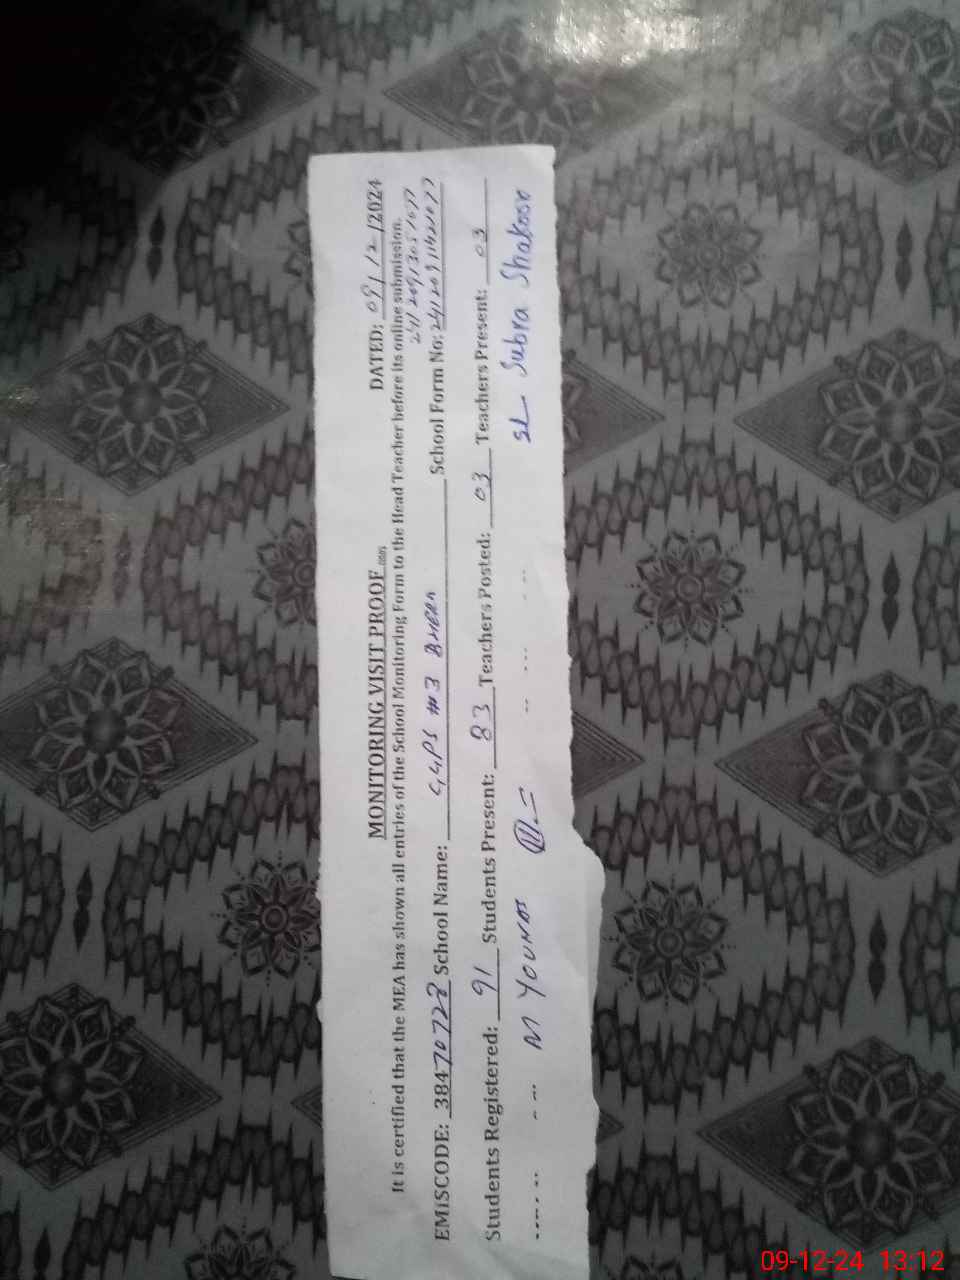 MONITORING VISIT PROOF
DATED: 09/12/2024
It is certified that the MEA has shown all entries of the School Monitoring Form to the Head Teacher before its online submission.
EMISCODE: 38470728 School Name: GGPS #3 BHERA School Form No:
Students Registered: 91 Students Present: 83 Teachers Posted: 03 Teachers Present: 03
M YOUNAS
SL- Subra Shakoor
09-12-24 13:12